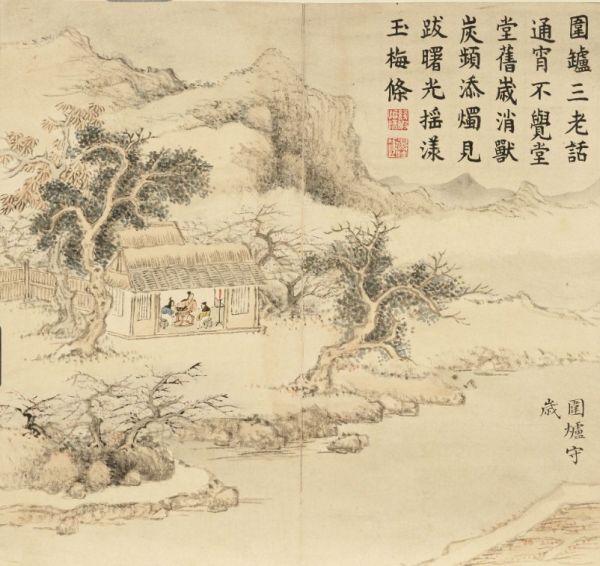 圍鑪三老話
通宵不覺堂
堂舊歳消獸
炭頻添燭見
跋曙光搖漾
玉梅條
圍爐守
歳